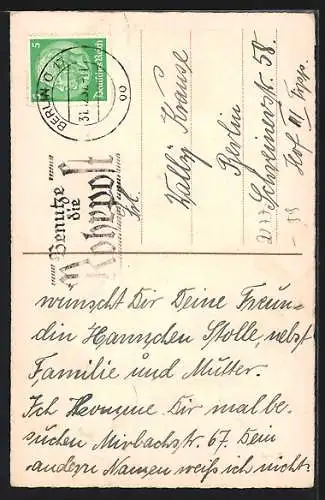 5
Deutsches Reich
BERLIN O
31.
Benutze
die
Rohrpost
Frl.
Wally Krause
Berlin
Schreinerstr. 58
Hof II
wünscht Dir Deine Freun-
din Hannchen Stolle, nebst
Familie und Mutter.
Ich komme Dir mal be-
suchen Mirbachstr. 67. Dein
andern Namen weiß ich nicht.